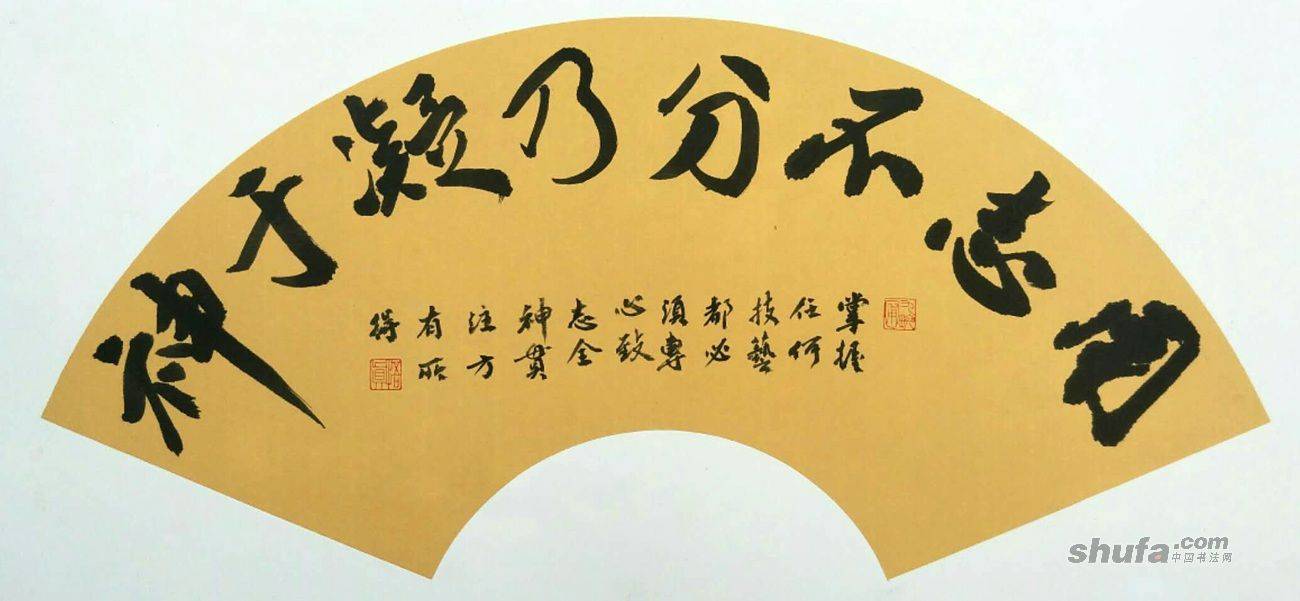 用志不分乃凝于神
掌握
任何
技藝
都必
須專
心致
志全
神貫
注方
有所
得
shufa.com
中国书法网